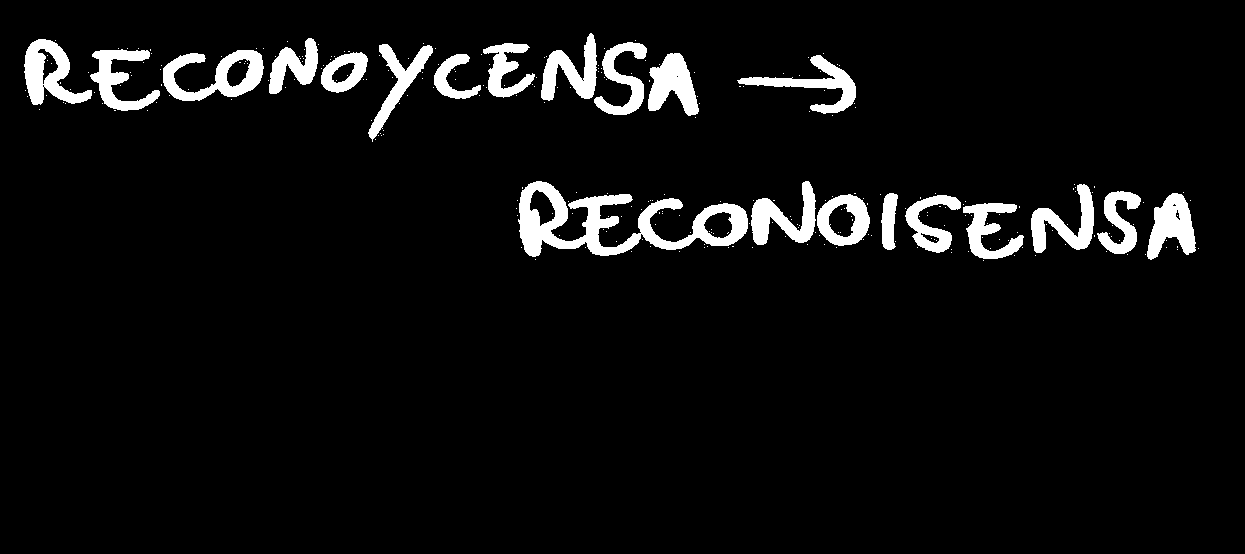 RECONOYCENSA →
RECONOISENSA